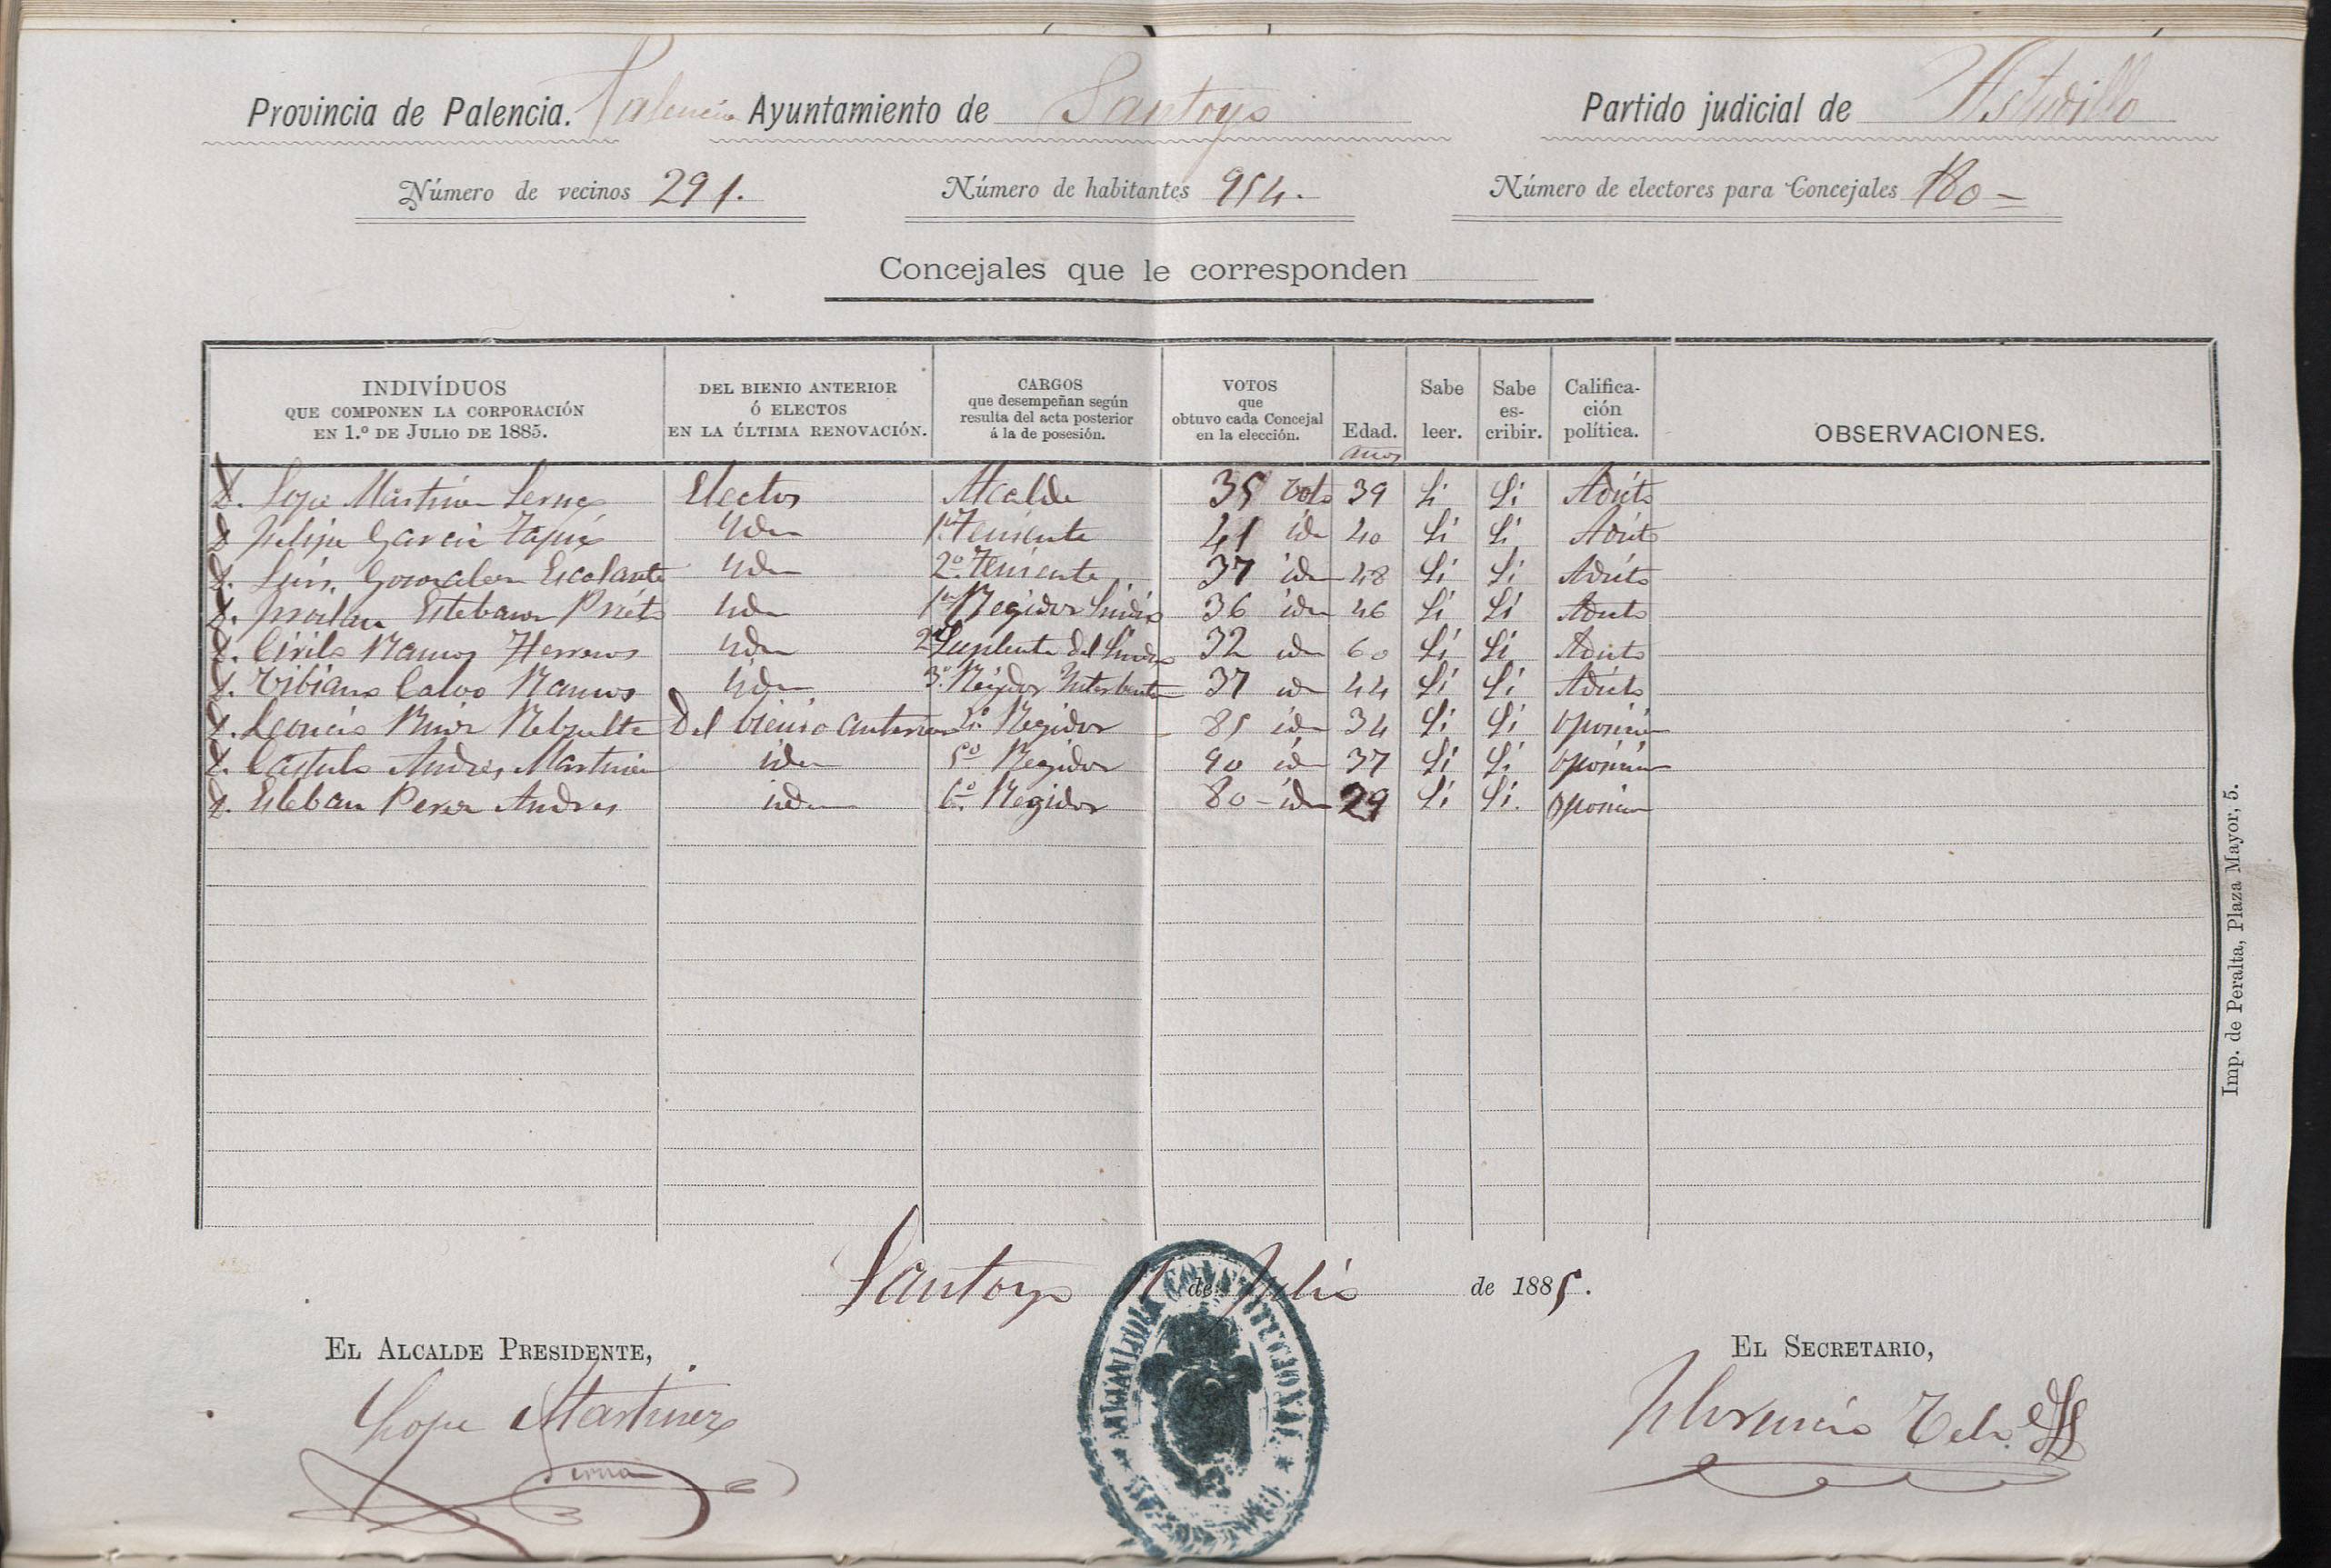 Provincia de Palencia. Palencia Ayuntamiento de Santoyo Partido judicial de Astudillo
Número de vecinos 291. Número de habitantes 954. Número de electores para Concejales 180
Concejales que le corresponden
INDIVÍDUOS QUE COMPONEN LA CORPORACIÓN EN 1.º DE JULIO DE 1885. DEL BIENIO ANTERIOR Ó ELECTOS EN LA ÚLTIMA RENOVACIÓN. CARGOS que desempeñan según resulta del acta posterior á la de posesión. VOTOS que obtuvo cada Concejal en la elección. Edad. Sabe leer. Sabe escribir. Calificación política. OBSERVACIONES.
años
D. Lope Martinez Serna Electos Alcalde 35 voto 39 Si Si Adicto
D. Felipe Garcia Tapia Idem 1er Teniente 41 idm 40 Si Si Adicto
D. Luis Gonzalez Escolante Idem 2º Teniente 37 idm 48 Si Si Adicto
D. Froilan Estebanez Prieto Idem 1er Regidor Sindico 36 idm 46 Si Si Adicto
D. Cirilo Ramos Herreros Idem 2º Suplente del Sindico 32 idm 60 Si Si Adicto
D. Vibiano Calvo Ramos Idem 3º Regidor Interbentor 37 idm 44 Si Si Adicto
D. Leoncio Ruiz Rebolta Del bienio anterior 4º Regidor 85 idm 34 Si Si Oposicion
D. Castulo Andres Martinez idem 5º Regidor 90 idm 37 Si Si Oposicion
D. Esteban Perez Andres idem 6º Regidor 80 idm 29 Si Si Oposicion
Santoyo de Julio de 1885.
EL ALCALDE PRESIDENTE, EL SECRETARIO,
Lope Martinez Florencio
Serna
CONSTITUCIONAL
Imp. de Peralta, Plaza Mayor, 5.